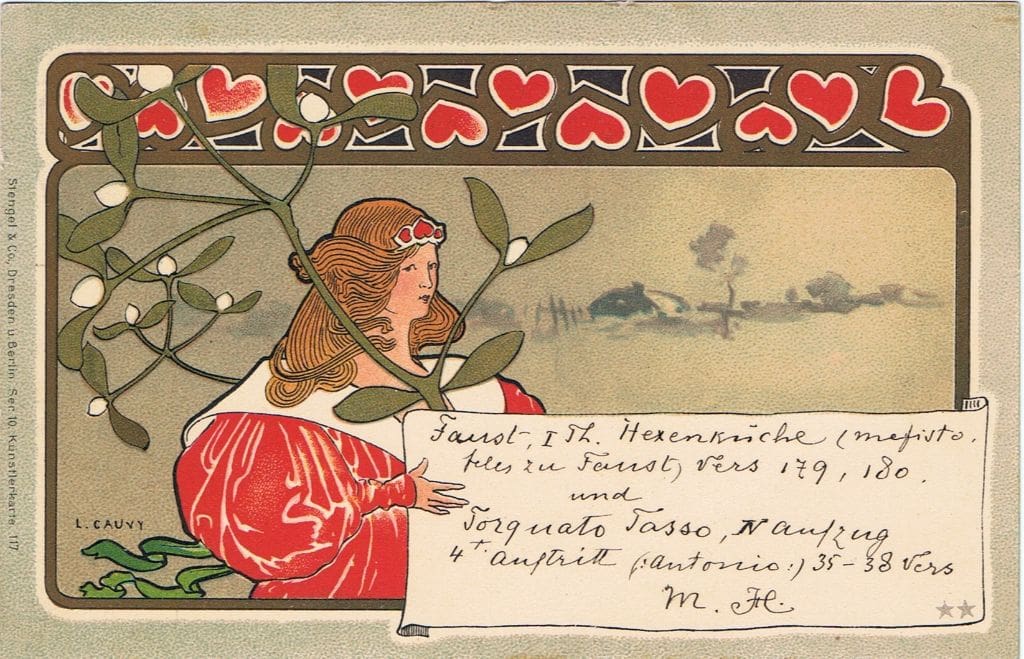 Stengel & Co., Dresden u. Berlin. Ser. 10. Künstlerkarte. 117
L. CAUVY
Faust, I Th. Hexenküche (mefisto.
feles zu Faust) Vers 179, 180.
und
Torquato Tasso, IV aufzug
4t. auftritt (:antonio:) 35-38 Vers
M. H.